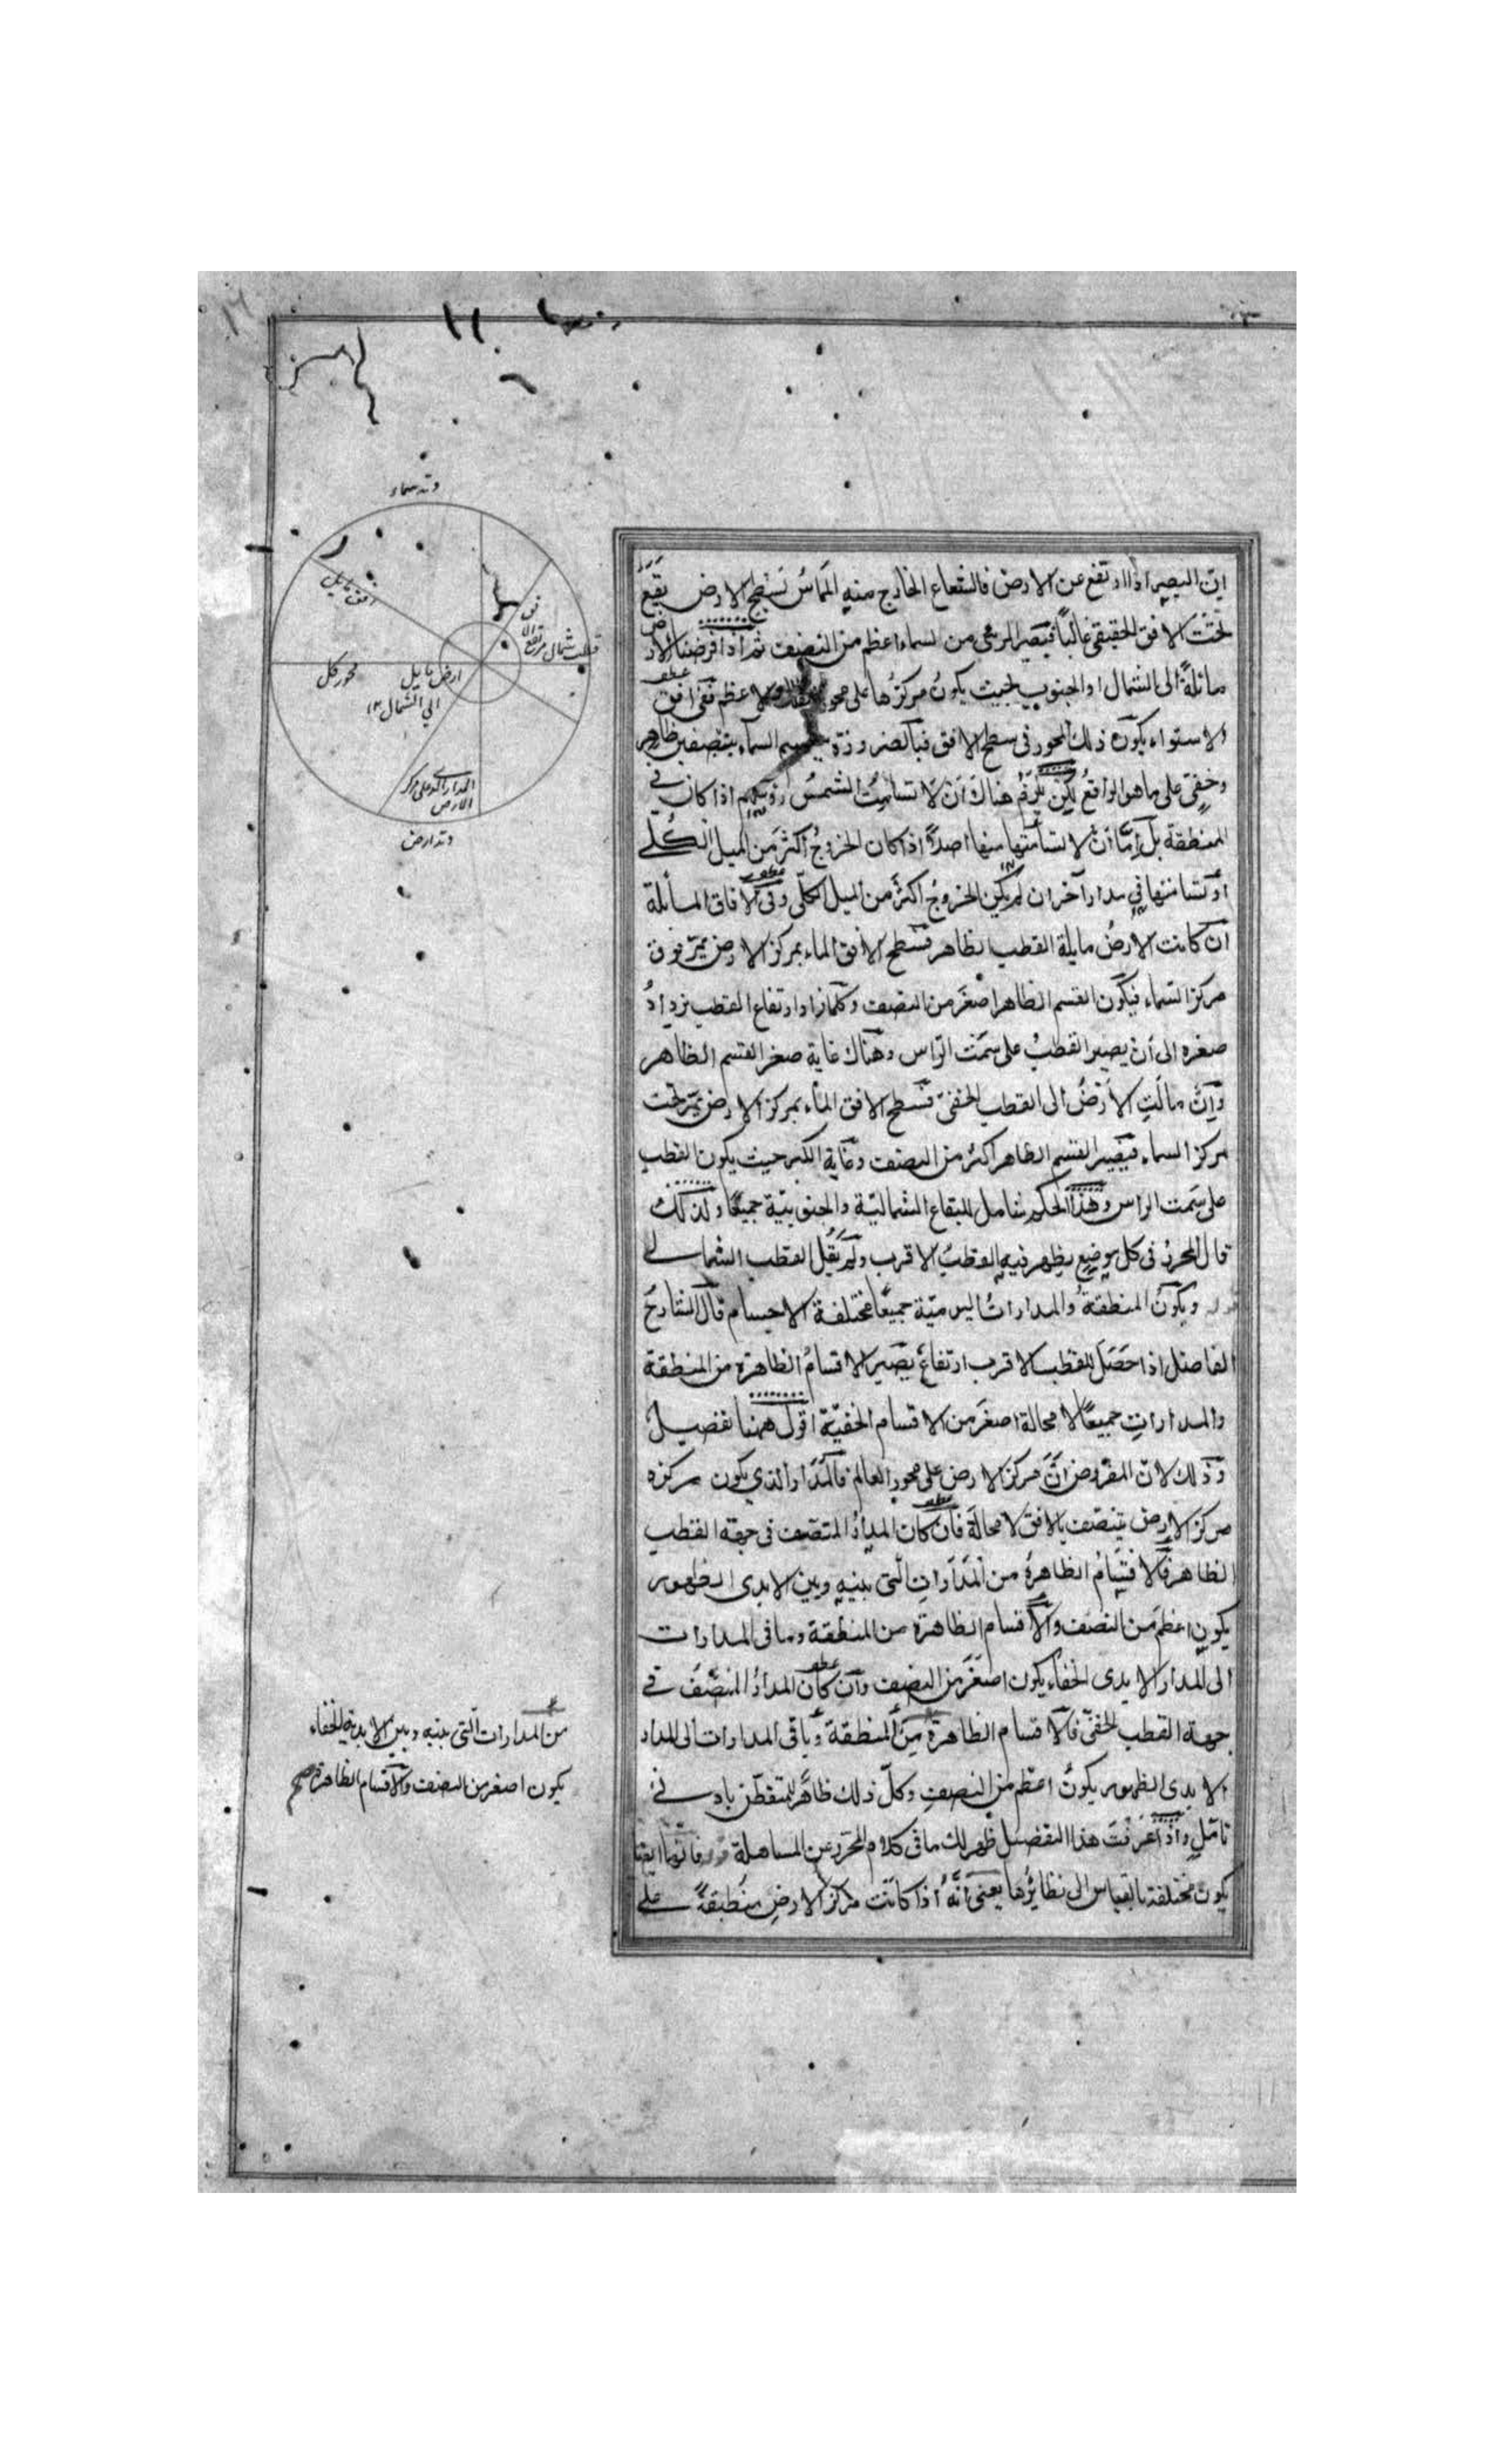 اين البصير اذا ارتفع عن الارض فالشعاع الخارج منه المماس لسطح الارض يقع
تحت الافق الحقيقي غالباً فيصير المرئي من السماء اعظم من النصف ثم اذا فرضنا الارض
مائلةً الى الشمال او الجنوب بحيث يكون مركزها على محور الاعظم ففي افق
الاستواء يكون ذلك المحور في سطح الافق فبالضرورة السماء بنصفين ظاهر
وخفي على ما هو الواقع لكن يلزم هناك ان لا تسامت الشمس رؤسهم اذا كان في
المنطقة بل اما ان لا تسامتها منها اصلاً اذ كان الخروج اكثر من الميل الكلي
او تسامتها في مدار آخر ان لم يكن الخروج اكثر من الميل الكلي وفي الافاق المائلة
ان كانت الارض مايلة القطب الظاهر فسطح الافق المار بمركز الارض يمر فوق
مركز السماء فيكون القسم الظاهر اصغر من النصف وكلما زاد ارتفاع القطب يزداد
صغره الى ان يصير القطب على سمت الراس وهناك غاية صغر القسم الظاهر
وان مالت الارض الى القطب الخفي فسطح الافق المار بمركز الارض يمر تحت
مركز السماء فيصير القسم الظاهر اكثر من النصف وغاية الكبر حيث يكون القطب
على سمت الراس وهذا الحكم شامل للبقاع الشمالية والجنوبية جميعًا ولذلك
قال المحرر في كل موضع يظهر فيه القطب الاقرب ولم يقل القطب الشمالي
ويكون المنطقة والمدارات اليومية جميعًا مختلفة الاجسام قال الشارح
الفاضل اذا حصل للقطب الاقرب ارتفاع يصير الاقسام الظاهرة من المنطقة
والمدارات جميعًا لا محالة اصغر من الاقسام الخفية اقول ههنا تفصيل
وذلك لان المفروض ان مركز الارض على محور العالم فالمدار الذي يكون مركزه
مركز الارض يتنصف بالافق لا محالة فان كان المدار المتنصف في جهة القطب
الظاهر فالاقسام الظاهرة من المدارات التي بينه وبين الابدى الظهور
يكون اعظم من النصف والاقسام الظاهرة من المنطقة وباقي المدارات
الى المدار الابدى الخفاء يكون اصغر من النصف وان كان المدار المنصف في
جهة القطب الخفي فالاقسام الظاهرة من المنطقة وباقي المدارات الى المدار
الابدى الظهور يكون اعظم من النصف وكل ذلك ظاهر للمتفطن بادنى
تامل واذ اعرفت هذا التفصيل ظهر لك ما في كلام المحرر عن المساهلة فانها ايضا
يكون مختلفة بالقياس الى نظائرها يعني انه اذا كانت مركز الارض منطبقةً على
من المدارات التي بينه وبين الابدية الخفاء
يكون اصغر من النصف والاقسام الظاهرة صح
وتد سماء
افق مايل
قطب شمال
محور كل
ارض مايل
الى الشمال
المدار الذي على مركز
الارض
وتد ارض